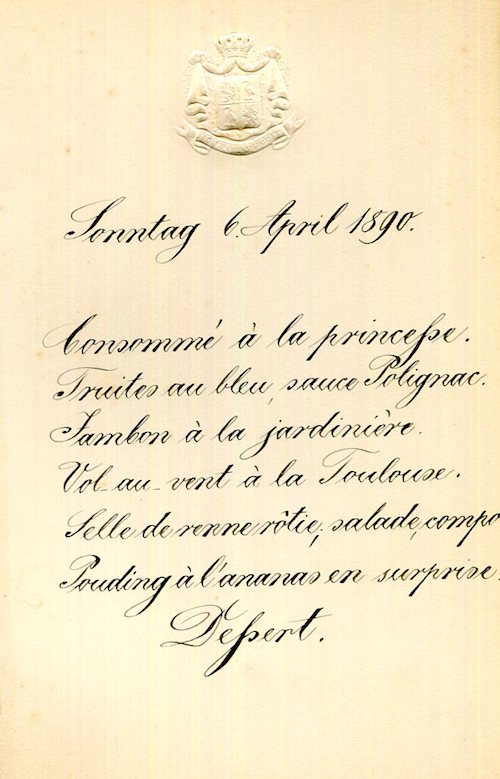 Sonntag 6. April 1890.
Consommé à la princesse.
Truites au bleu, sauce Polignac.
Jambon à la jardinière.
Vol-au-vent à la Toulouse.
Selle de renne rôtie; salade, compo
Pouding à l'ananas en surprise.
Dessert.